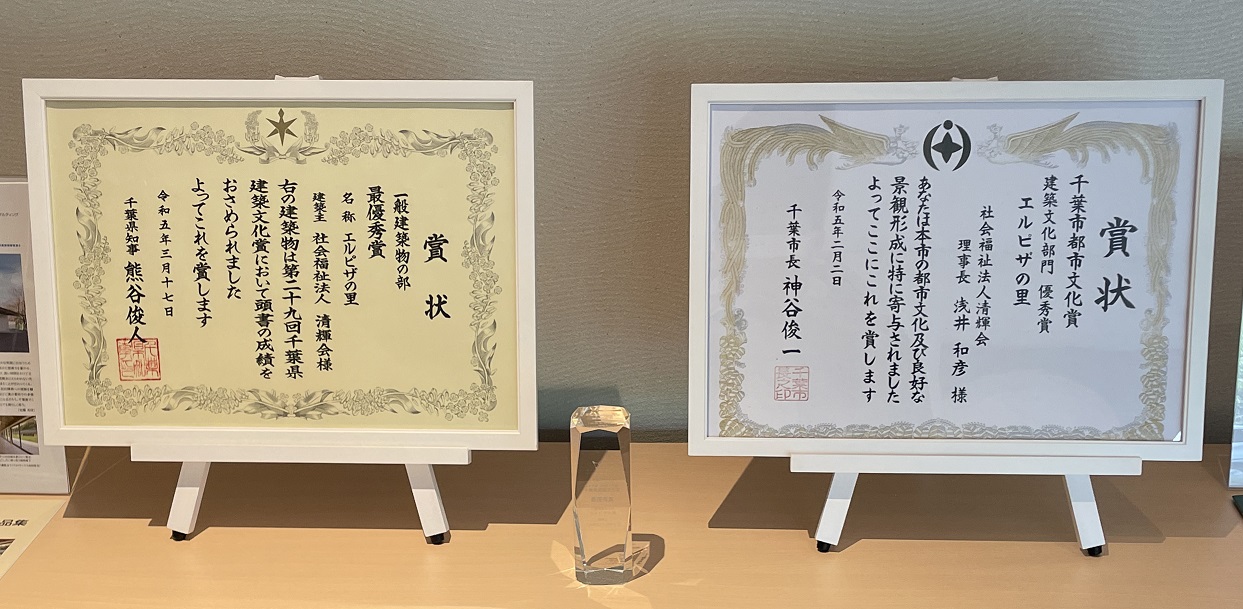 賞状
一般建築物の部
最優秀賞
名称 エルピザの里
建築主 社会福祉法人 清輝会様
右の建築物は第二十九回千葉県
建築文化賞において頭書の成績を
おさめられました
よってこれを賞します
令和五年三月十七日
千葉県知事 熊谷俊人
賞状
千葉市都市文化賞
建築文化部門 優秀賞
エルピザの里
社会福祉法人清輝会
理事長 浅井 和彦 様
あなたは本市の都市文化及び良好な
景観形成に特に寄与されました
よってここにこれを賞します
令和五年二月二日
千葉市長 神谷俊一
千葉市長之印
品集